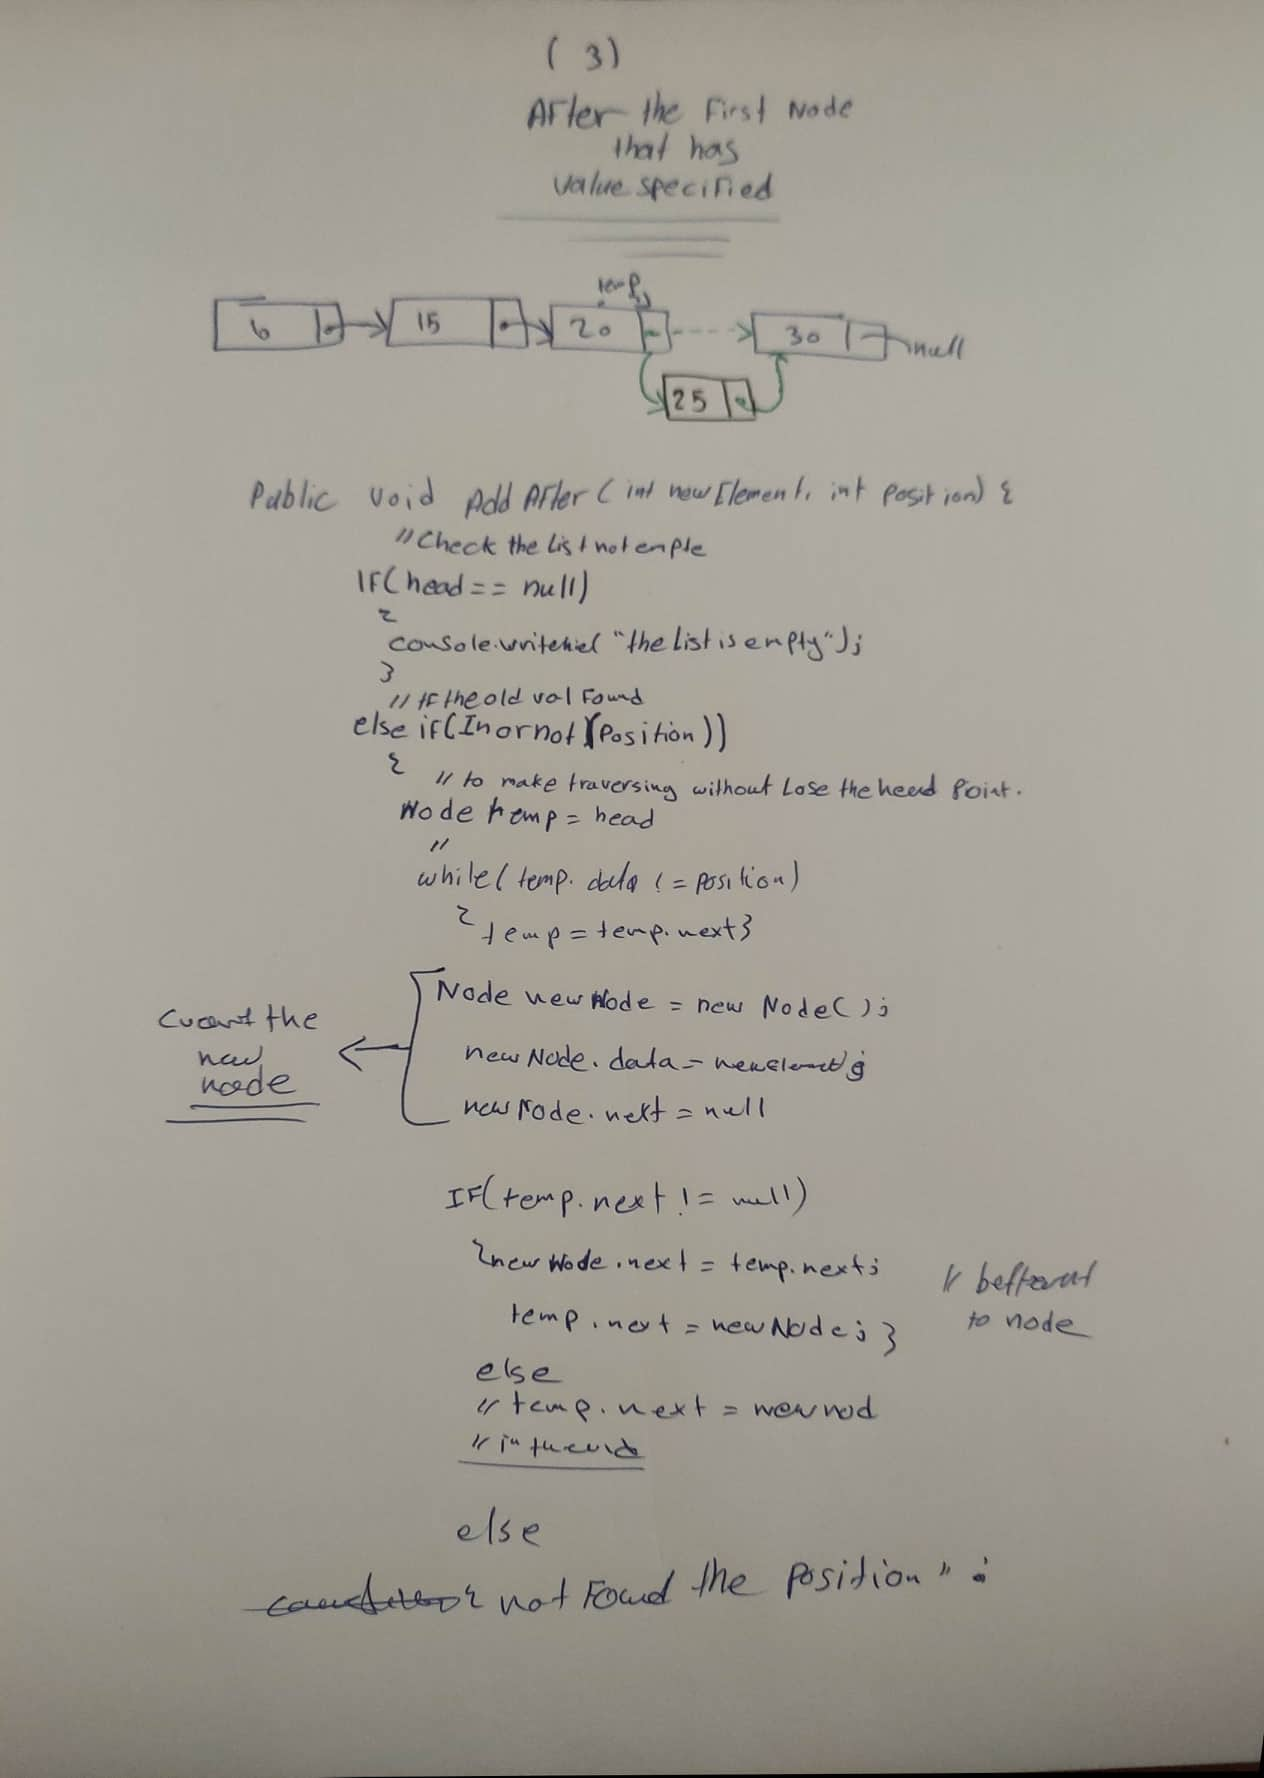 ( 3 )
After the First Node
that has
value specified
temp
6 15 20 30 null
25
Public void Add After ( int newElement, int Position) {
// Check the List not emple
IF( head == null)
{
console.write "the List is empty");
}
// IF the old val Found
else if(In or not (Position))
{ // to make traversing without Lose the head Point.
Node temp = head
//
while( temp. data != position)
{ temp = temp. next }
Node newNode = new Node( );
the
new
node
newNode. data = newElement;
newNode. next = null
IF( temp. next != null)
{ newNode .next = temp. next;
temp . next = newNode ; }
// 
to node
else
// temp. next = newnod
// in the end
else
{ not Found the Position " ;